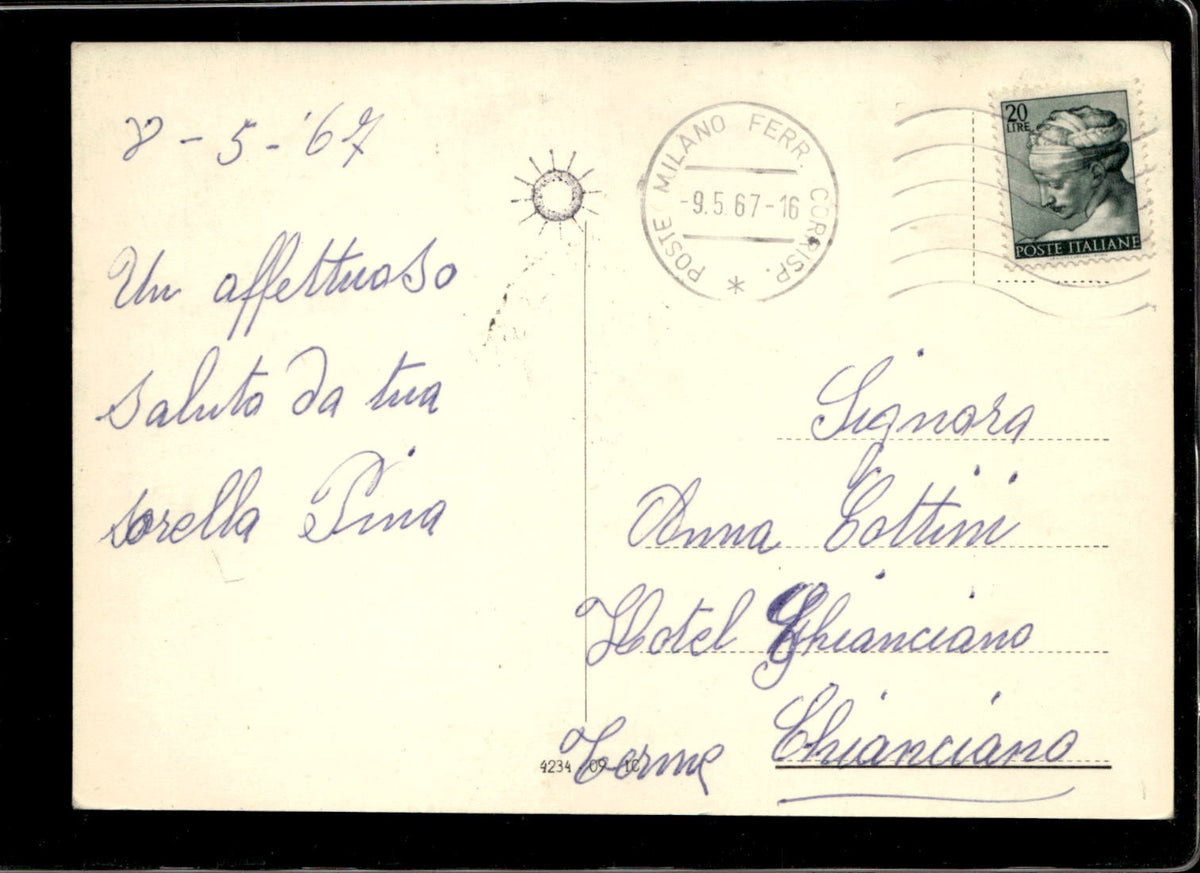 8-5-'67
Un affettuoso
saluto da tua
sorella Pina
POSTE MILANO FERR. CORRISP.
-9.5.67-16
20
LIRE
POSTE ITALIANE
Signora
Anna Cottini
Hotel Chianciano
Terme Chianciano
4234 - 09 - 1C